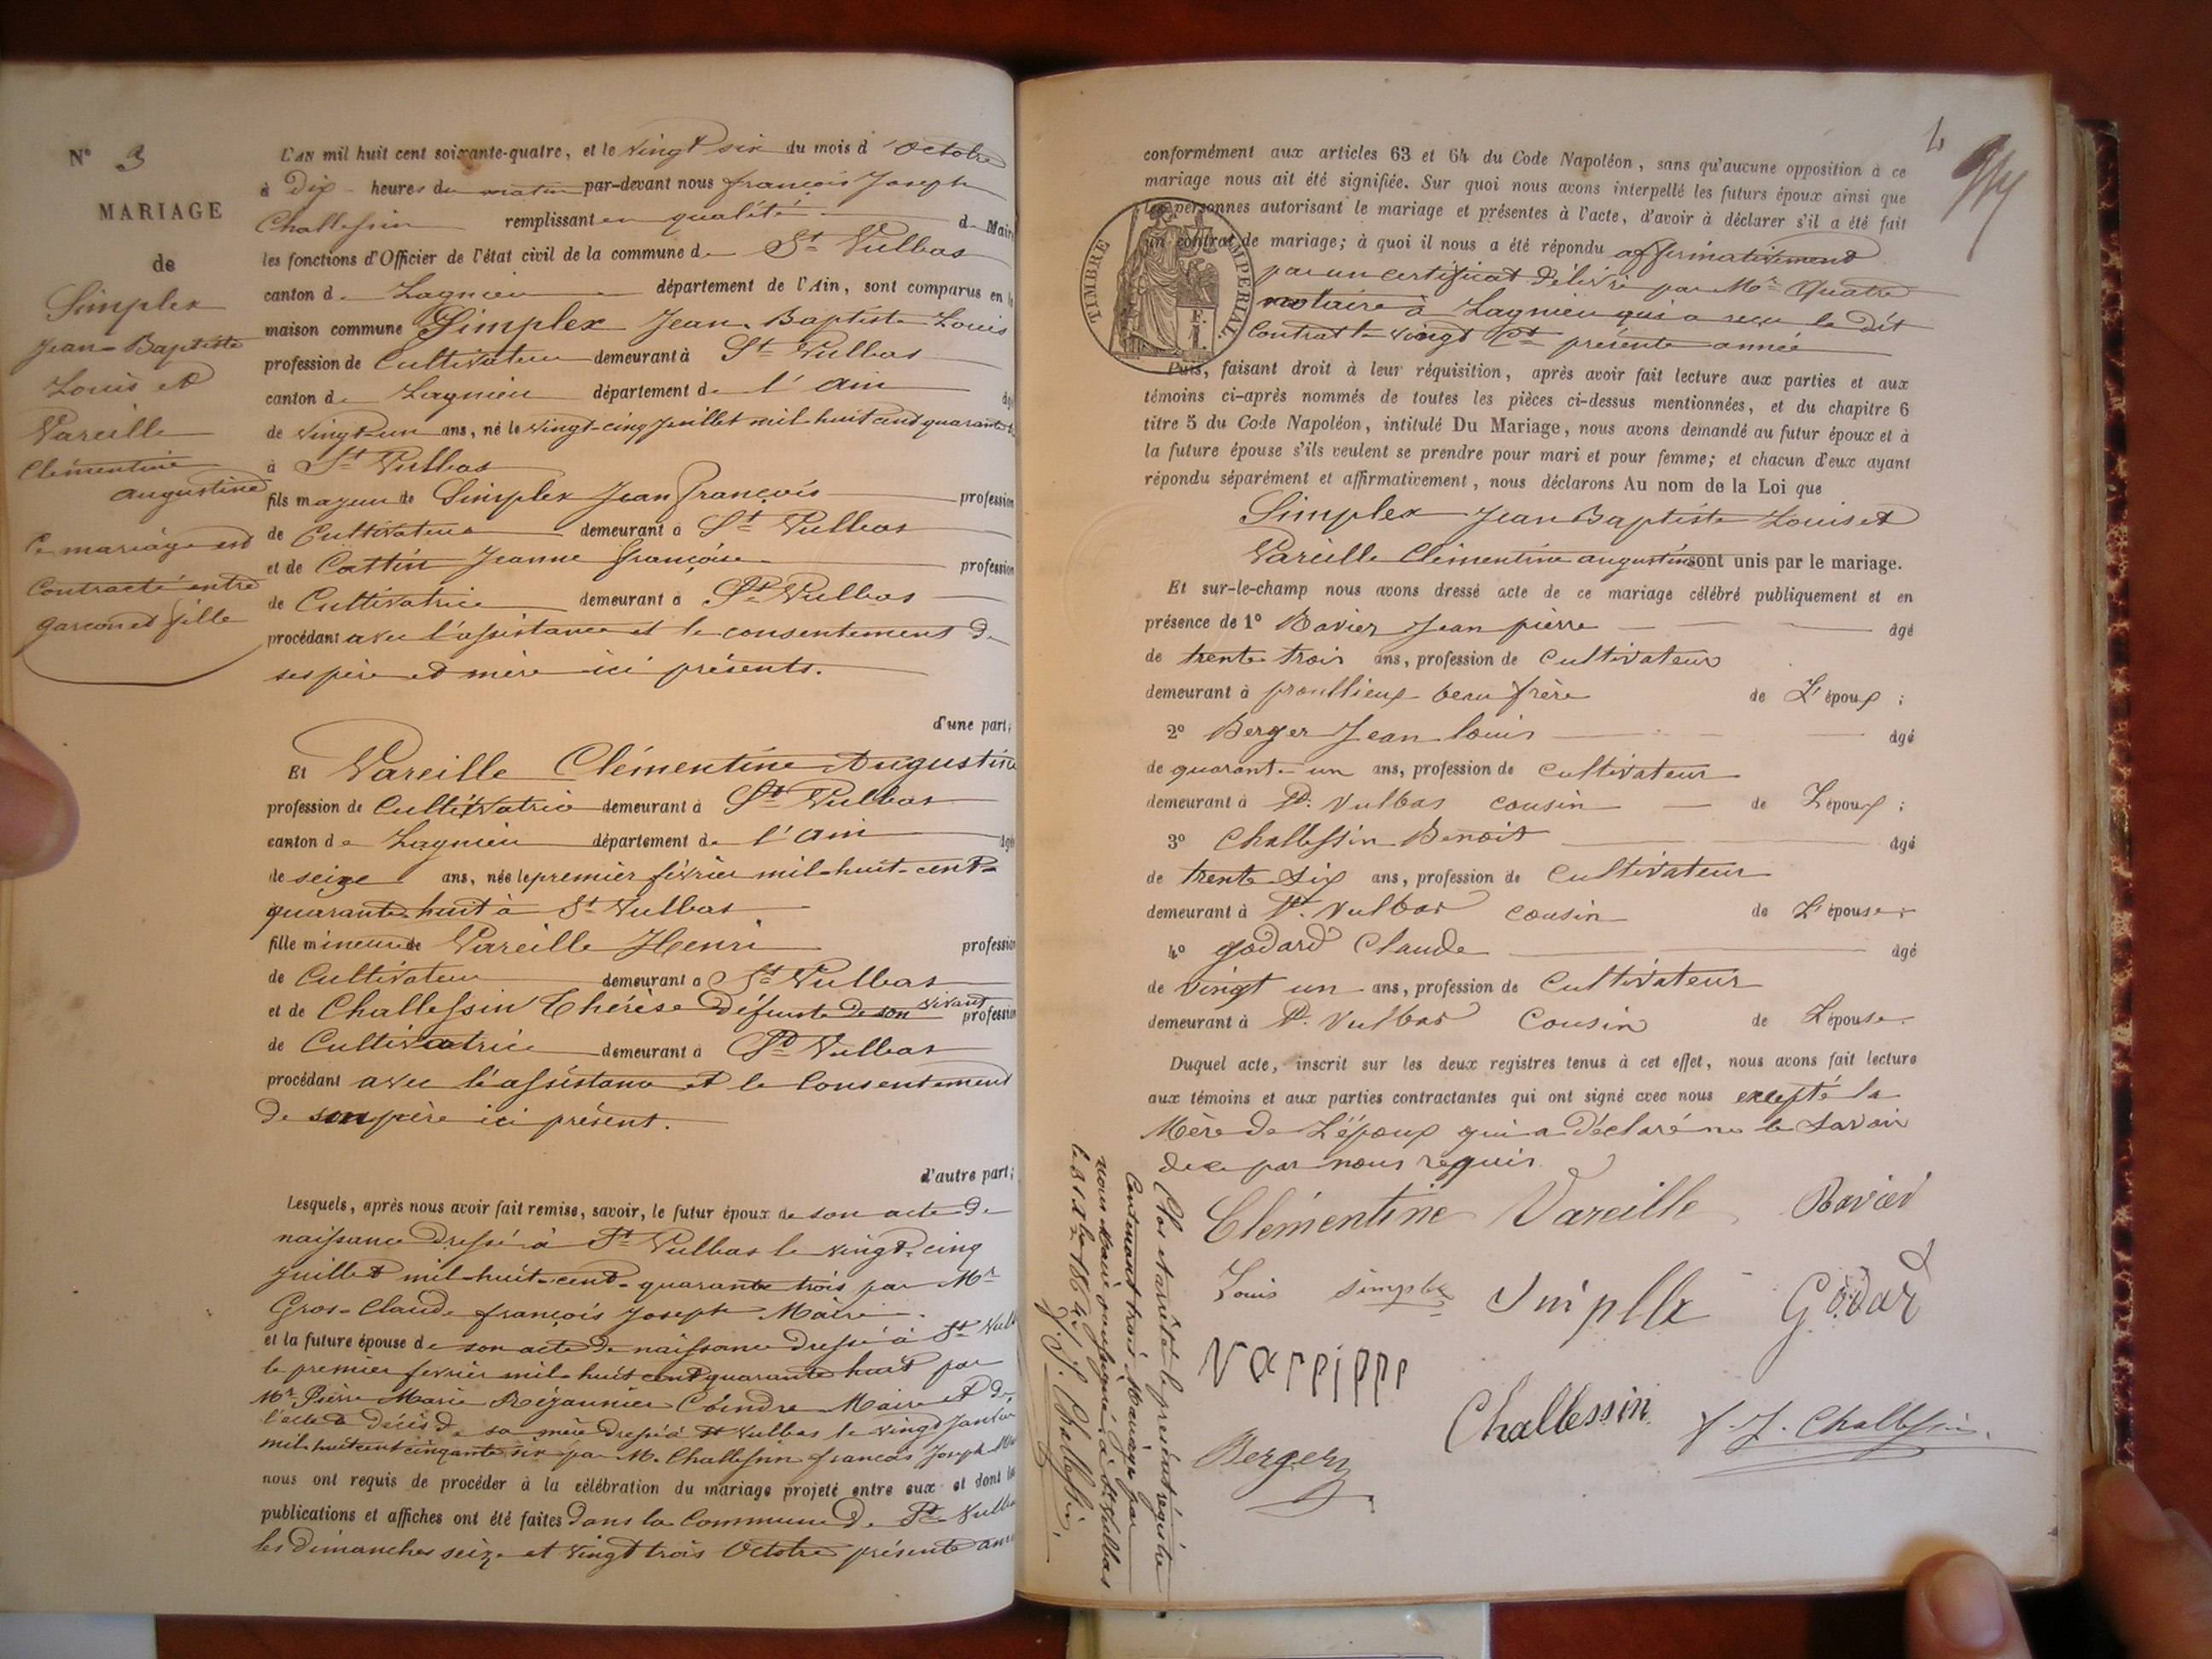 N° 3
MARIAGE
de
Simplex
Jean-Baptiste
Louis et
Vareille
Clémentine
augustine
Ce mariage est
contracté entre
garçon et fille
L'AN mil huit cent soixante-quatre, et le vingt six du mois d'octobre
à Dix heures du matin par-devant nous françois Joseph
Challessin remplissant en qualité de Maire
les fonctions d'Officier de l'état civil de la commune de St Vulbas
canton de Lagnieu département de l'Ain, sont comparus en la
maison commune Simplex Jean-Baptiste Louis
profession de Cultivateur demeurant à St Vulbas
canton de Lagnieu département de l'ain âgé
de vingt-un ans, né le vingt-cinq juillet mil-huit cent quarante
à St Vulbas
fils majeur de Simplex Jean françois profession
de Cultivateur demeurant à St Vulbas
et de Cottin Jeanne françoise profession
de Cultivatrice demeurant à St Vulbas
procédant avec l'assistance et le consentement de
ses père et mère ici présents.
d'une part;
Et Vareille Clémentine Augustine
profession de Cultivatrice demeurant à St Vulbas
canton de Lagnieu département de l'ain âgée
de seize ans, née le premier février mil-huit-cent-
quarante-huit à St Vulbas
fille mineure de Vareille Henri profession
de Cultivateur demeurant à St Vulbas
et de Challessin Thérèse défunte de son vivant profession
de Cultivatrice demeurant à St Vulbas
procédant avec l'assistance et le Consentement
de son père ici présent.
d'autre part;
Lesquels, après nous avoir fait remise, savoir, le futur époux de son acte de
naissance dressé à St Vulbas le vingt-cinq
juillet mil-huit-cent-quarante trois par Mr
Gros-Claude françois Joseph Maire.
et la future épouse de son acte de naissance dressé à St Vulbas
le premier fevrier mil-huit cent quarante huit par
Mr Pierre Marie Maire et de
l'acte de décès de sa mère dressé à St Vulbas le vingt Janvier
mil-huit cent cinquante six par M. Challessin francois Joseph Maire
nous ont requis de procéder à la célébration du mariage projeté entre eux et dont les
publications et affiches ont été faites dans la Commune de St Vulbas
les dimanches seize et vingt trois Octobre présente année
4
conformément aux articles 63 et 64 du Code Napoléon, sans qu'aucune opposition à ce
mariage nous ait été signifiée. Sur quoi nous avons interpellé les futurs époux ainsi que
les personnes autorisant le mariage et présentes à l'acte, d'avoir à déclarer s'il a été fait
un contrat de mariage; à quoi il nous a été répondu affirmativement
par un certificat délivré par Mr Quatre
notaire à Lagnieu qui a reçu le dit
Contrat le vingt présente année
TIMBRE IMPERIAL
Puis, faisant droit à leur réquisition, après avoir fait lecture aux parties et aux
témoins ci-après nommés de toutes les pièces ci-dessus mentionnées, et du chapitre 6
titre 5 du Code Napoléon, intitulé Du Mariage, nous avons demandé au futur époux et à
la future épouse s'ils veulent se prendre pour mari et pour femme; et chacun d'eux ayant
répondu séparément et affirmativement, nous déclarons Au nom de la Loi que
Simplex Jean Baptiste Louis et
Vareille Clémentine augustine sont unis par le mariage.
Et sur-le-champ nous avons dressé acte de ce mariage célébré publiquement et en
présence de 1° Bavier Jean pierre âgé
de trente trois ans, profession de Cultivateur
demeurant à proullieux beau frère de L'époux;
2° Berger Jean louis âgé
de quarante un ans, profession de cultivateur
demeurant à St. Vulbas cousin de L'époux;
3° Challessin Benoit âgé
de trente six ans, profession de Cultivateur
demeurant à St. Vulbas cousin de L'épouse
4° godard Claude âgé
de vingt un ans, profession de Cultivateur
demeurant à St. Vulbas Cousin de L'épouse.
Duquel acte, inscrit sur les deux registres tenus à cet effet, nous avons fait lecture
aux témoins et aux parties contractantes qui ont signé avec nous excepté la
Mère de L'époux qui a déclaré ne le savoir
de ce par nous requis.
Clémentine Vareille Bavier
Louis simplex Simpllx Godar
Vareille
Bergery Challessin f. J. Challessin.
Clos et arrêté le présent régistre
Contenant trois Mariages par
nous Maire soussigné à St Vulbas
le 31 Xbre 1864
f. J. Challessin.